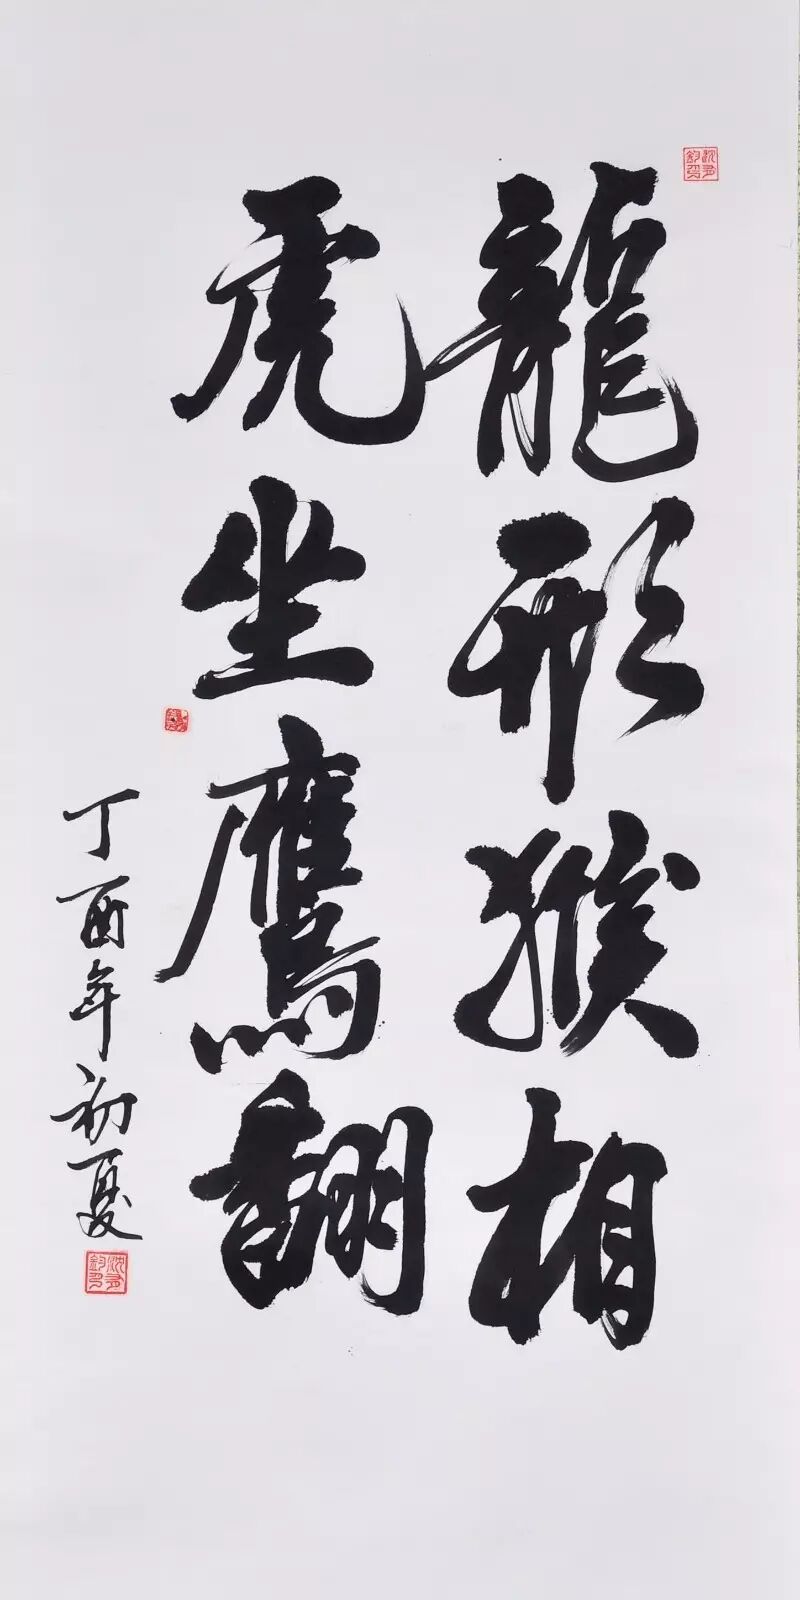 龍形猴相
虎坐鷹翻
丁酉年初夏